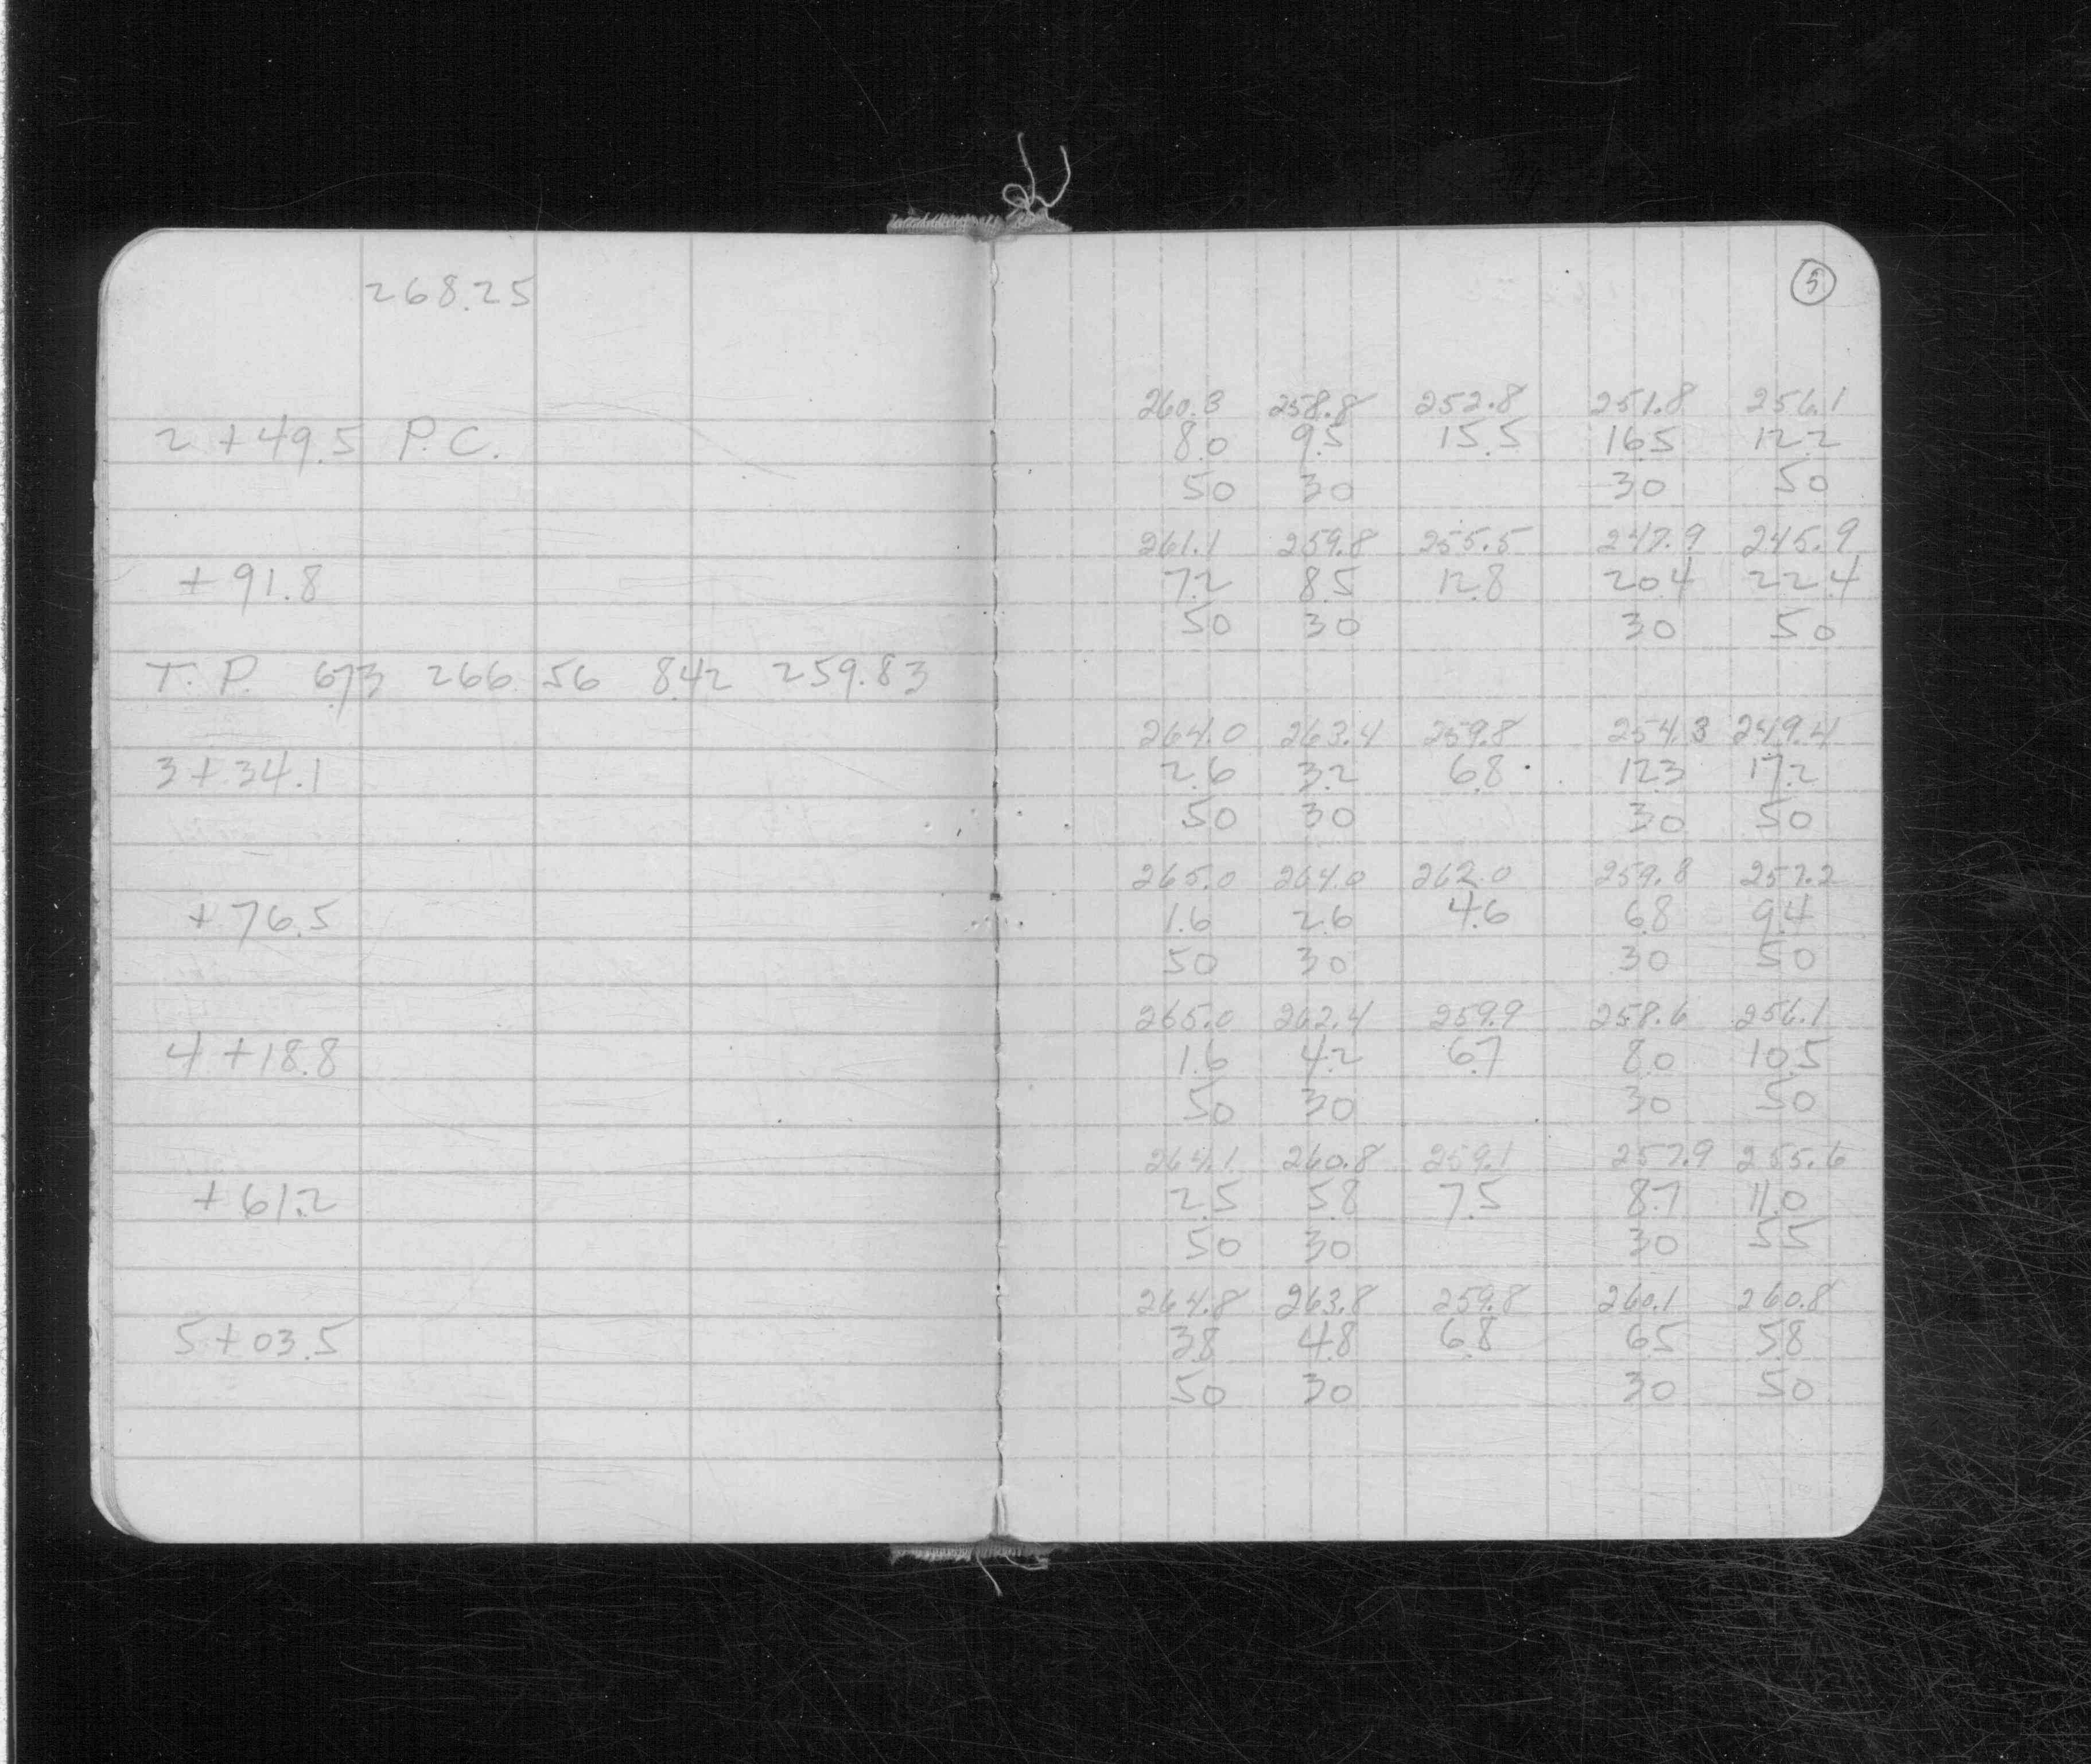 268.25
5
260.3 258.8 252.8 251.8 256.1
2 + 49.5 P.C. 8.0 9.5 15.5 16.5 12.2
50 30 30 50
261.1 259.8 255.5 247.9 245.9
+ 91.8 7.2 8.5 12.8 20.4 22.4
50 30 30 50
T. P. 6.73 266.56 8.42 259.83
264.0 263.4 259.8 254.3 249.4
3 + 34.1 2.6 3.2 6.8 12.3 17.2
50 30 30 50
265.0 264.0 262.0 259.8 257.2
+ 76.5 1.6 2.6 4.6 6.8 9.4
50 30 30 50
265.0 262.4 259.9 258.6 256.1
4 + 18.8 1.6 4.2 6.7 8.0 10.5
50 30 30 50
264.1 260.8 259.1 257.9 255.6
+ 61.2 2.5 5.8 7.5 8.7 11.0
50 30 30 55
264.8 263.8 259.8 260.1 260.8
5 + 03.5 3.8 4.8 6.8 6.5 5.8
50 30 30 50